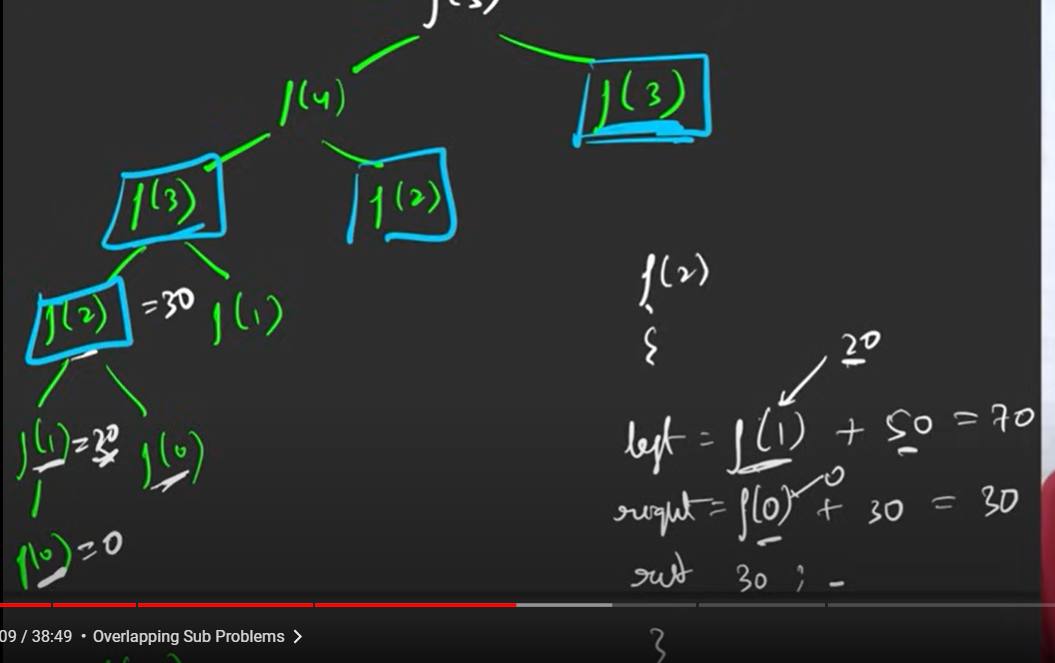 f(5)
f(4)
f(3)
f(3)
f(2)
f(2) = 30
f(1)
f(1) = 20
f(0)
f(0) = 0
f(2)
{
20
left = f(1) + 50 = 70
right = f(0) + 30 = 30
0
ret 30 ;
}
09 / 38:49 • Overlapping Sub Problems >